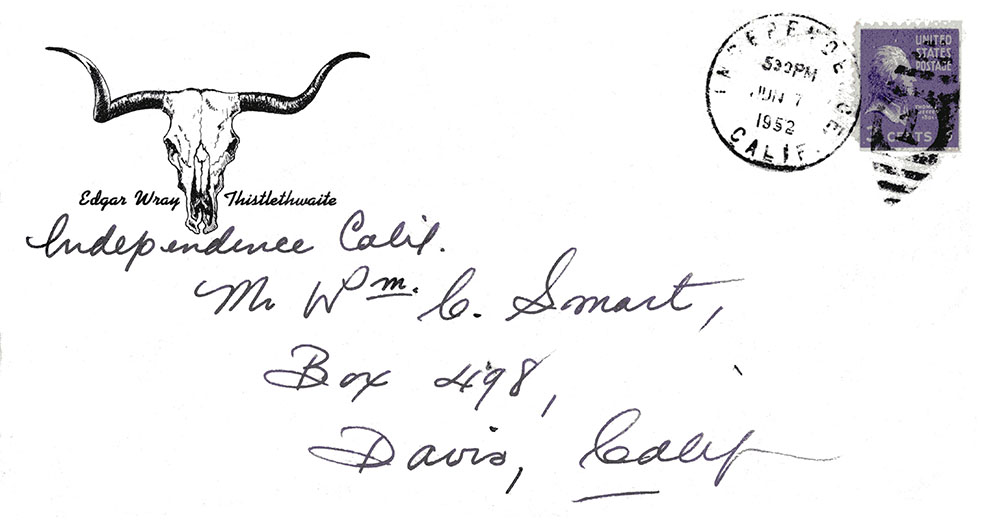 Edgar Wray Thistlethwaite
Independence Calif.
INDEPENDENCE
530PM
JUN 7
1952
CALIF.
UNITED
STATES
POSTAGE
3 CENTS 3
Mr Wm. C. Smart,
Box 498,
Davis, Calif